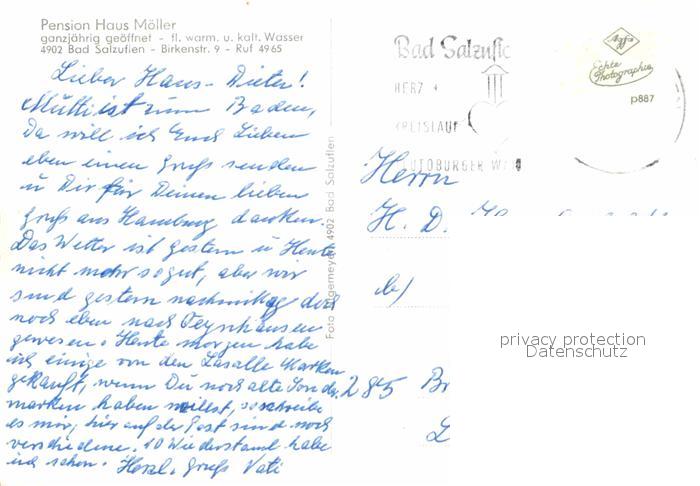 Pension Haus Möller
ganzjährig geöffnet - fl. warm. u. kalt. Wasser
4902 Bad Salzuflen - Birkenstr. 9 - Ruf 4965
Lieber Hans-Dieter!
Mutti ist zum Baden,
Da will ich Euch Lieben
eben einen Gruß senden
u Dir für Deinen lieben
Gruß aus Hamburg danken.
Das Wetter ist gestern u Heute
nicht mehr so gut, aber wir
sind gestern nachmittag doch
noch eben nach Oeynhausen
gewesen. Heute morgen habe
ich einige von den Lasalle Marken
gekauft, wenn Du noch alte Sonder
marken haben willst, so schreibe
es mir, hier auf der Post sind noch
verschiedene. 10 Wiederstand habe
ich schon. Herzl. Gruß Vati
Foto 4902 Bad Salzuflen
Bad Salzufle
HERZ +
KREISLAUF
TEUTOBURGER WALD
Agfa
Echte
Photographie
p887
Herrn
H. D.
b/
285 Br
L
privacy protection
Datenschutz